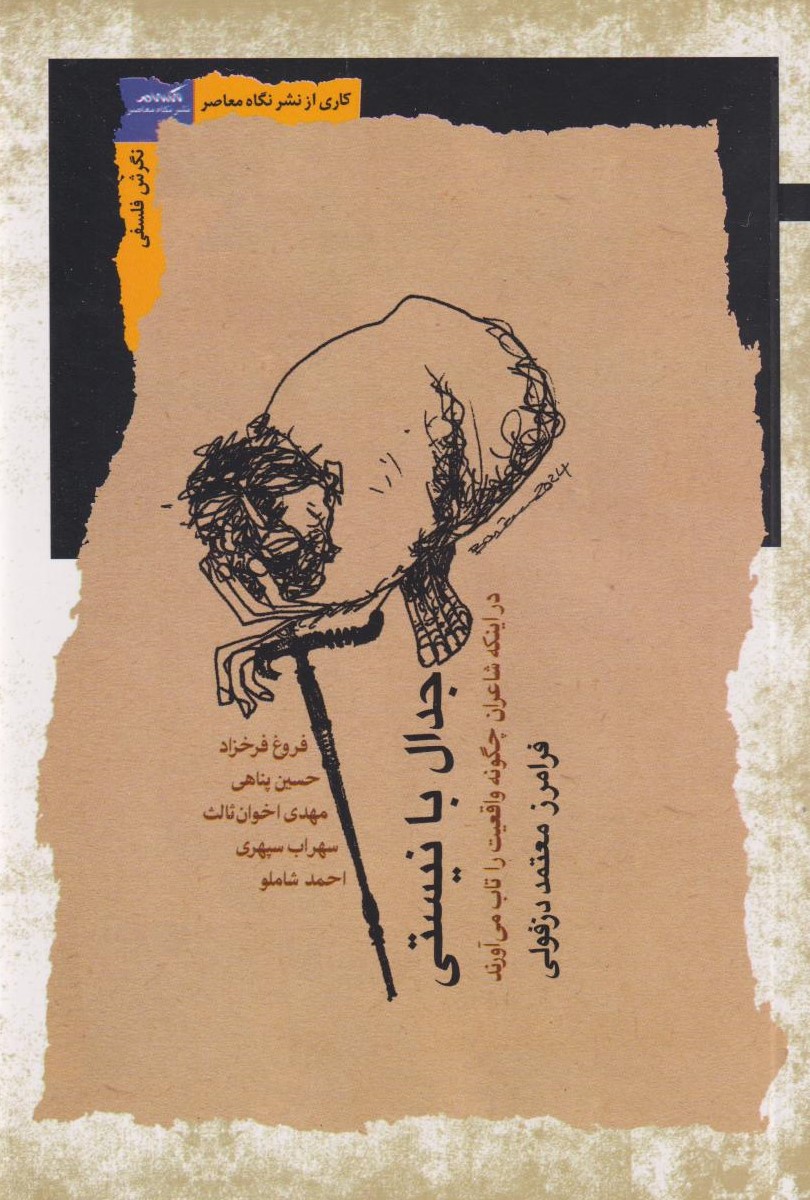 کاری از نشر نگاه معاصر
نشر نگاه معاصر
نگرش فلسفی
جدال با نیستی
در اینکه شاعران چگونه واقعیت را تاب می‌آورند
فرامرز معتمد دزفولی
فروغ فرخزاد
حسین پناهی
مهدی اخوان‌ثالث
سهراب سپهری
احمد شاملو
2024